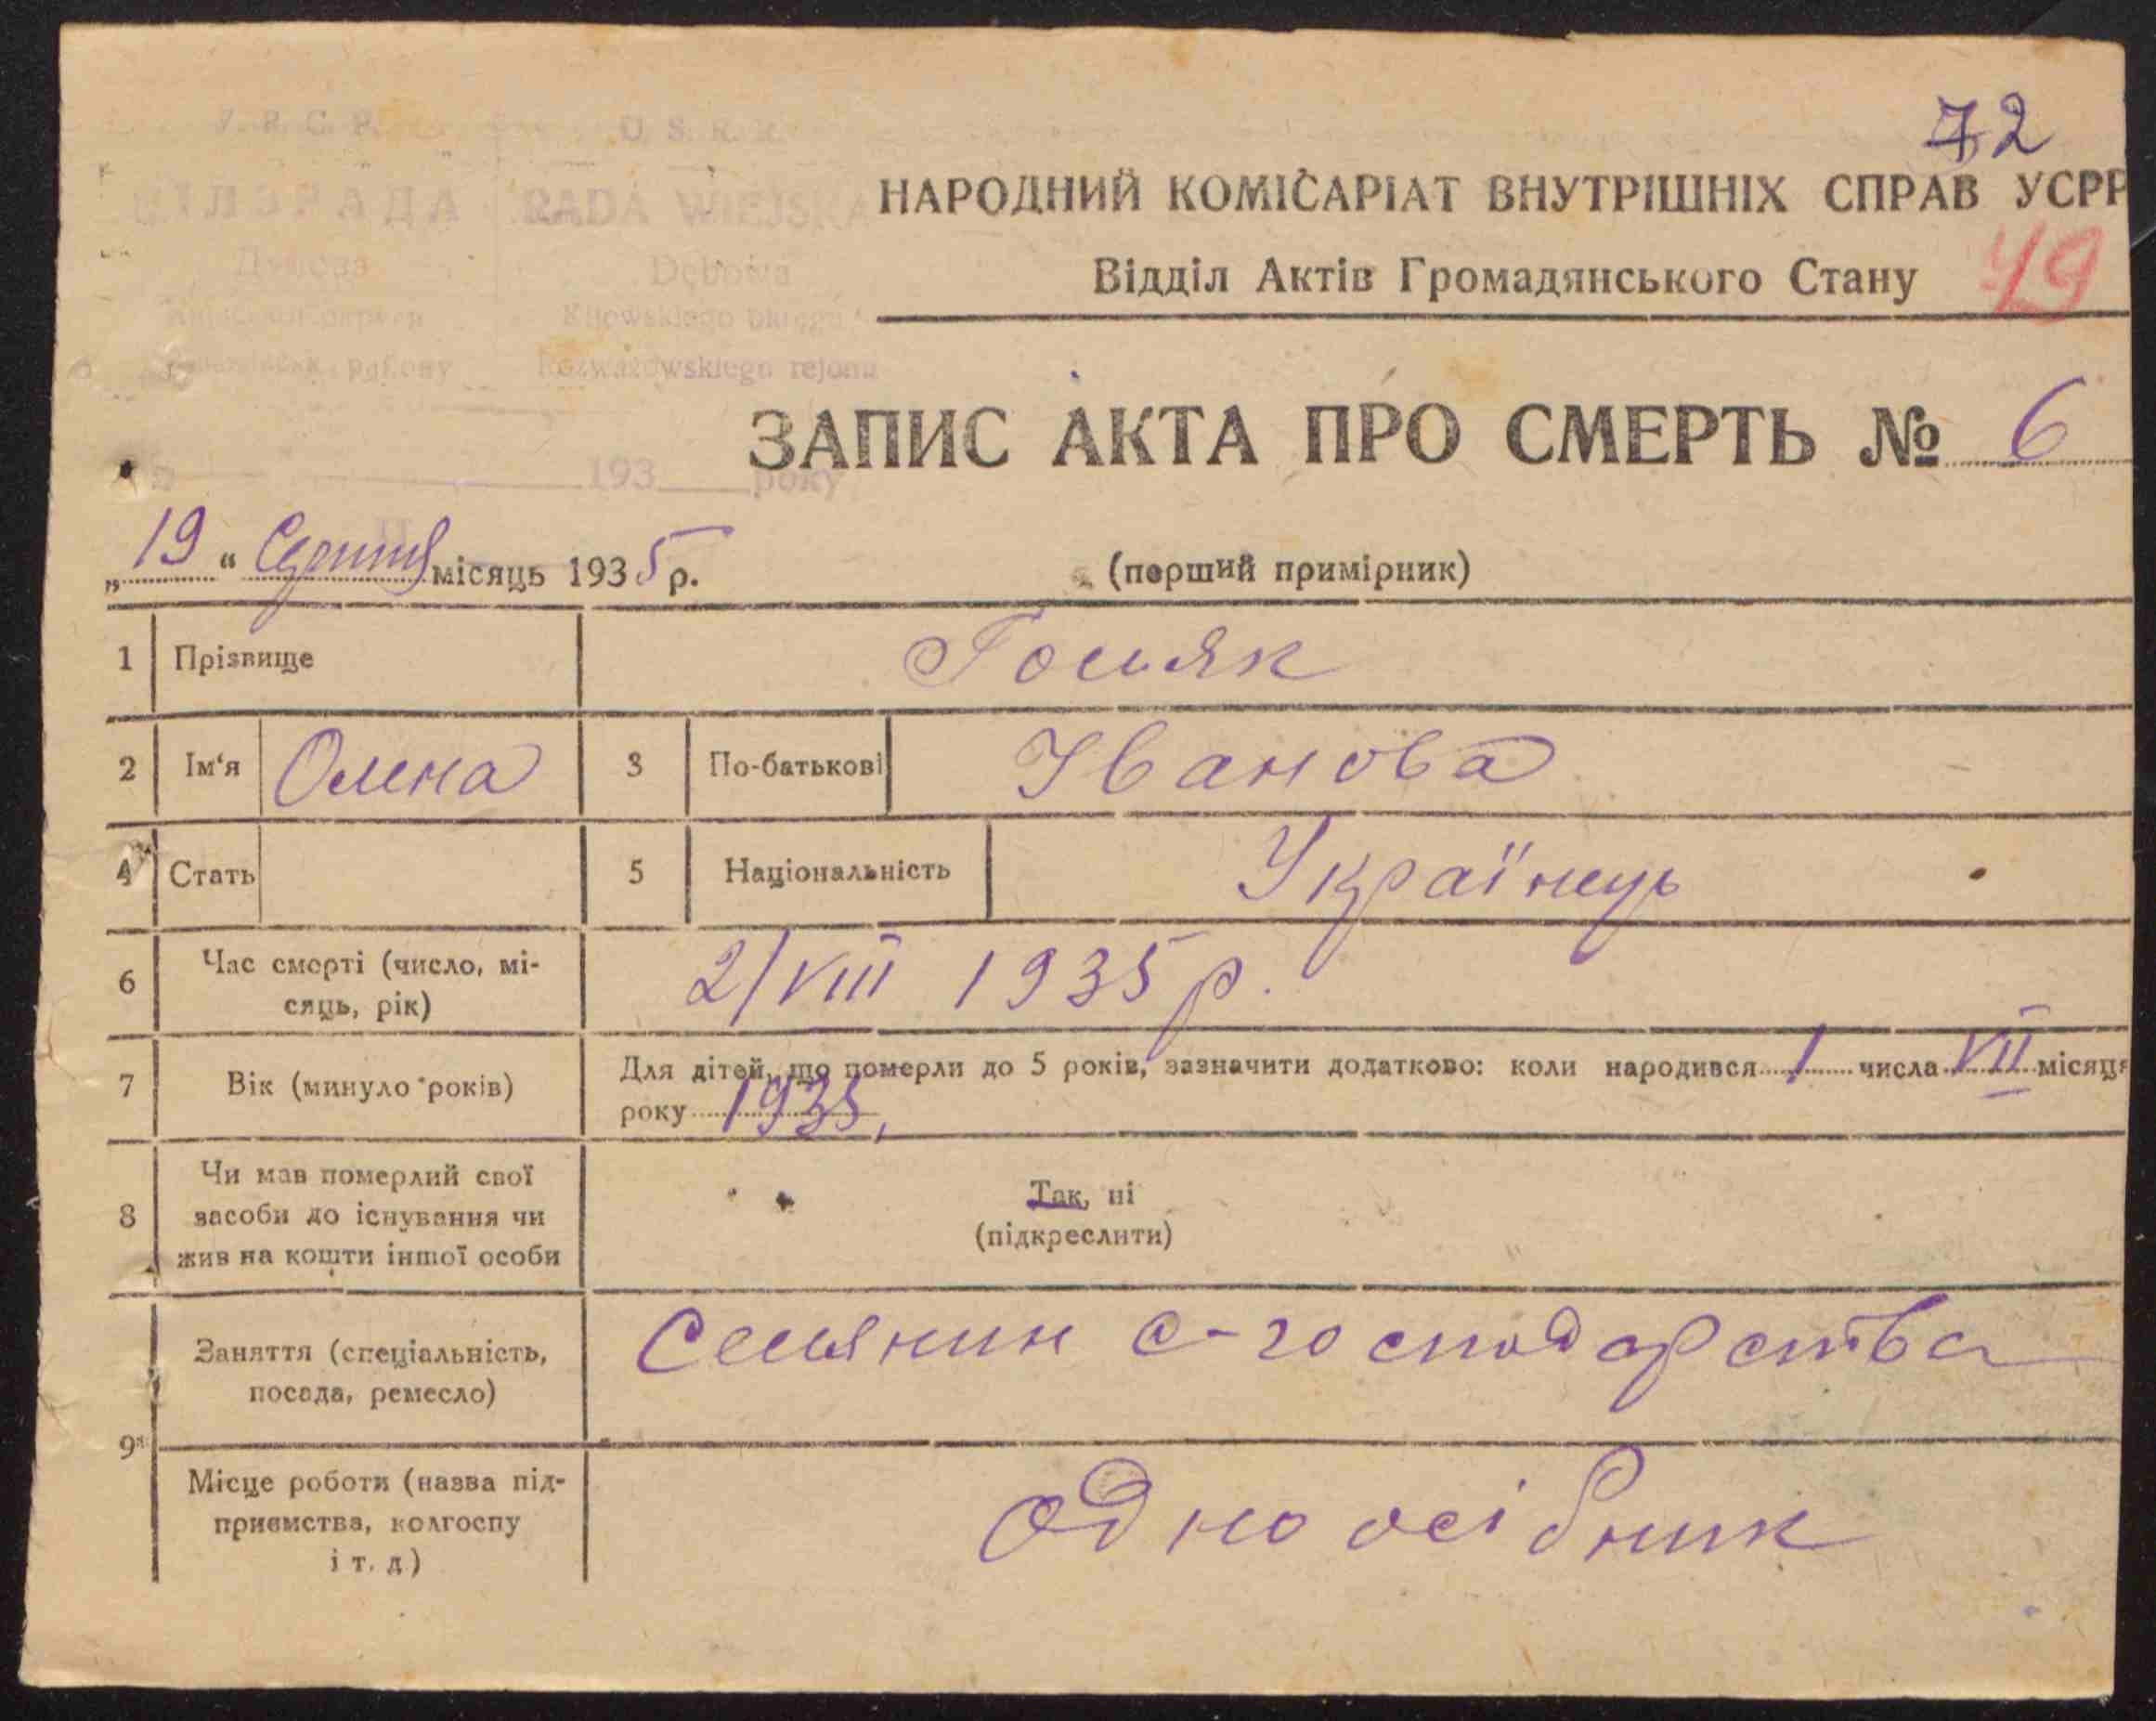 У. Р. С. Р. U. S. R. R.
СІЛЬРАДА RADA WIEJSKA
Dębowa
Kijowskiego okręgu
району Rozważowskiego rejonu
193 року
72
НАРОДНИЙ КОМІСАРІАТ ВНУТРІШНІХ СПРАВ УСРР
Відділ Актів Громадянського Стану 49
ЗАПИС АКТА ПРО СМЕРТЬ № 6
„19“ Серпня місяць 1935 р. (перший примірник)
1 Прізвище Гомяк
2 Ім'я Олена 3 По-батькові Іванова
4 Стать 5 Національність Українець
6 Час смерті (число, мі-
сяць, рік) 2/VIII 1935 р.
7 Вік (минуло років) Для дітей, що померли до 5 років, зазначити додатково: коли народився 1 числа VII місяця
року 1935,
8 Чи мав померлий свої
засоби до існування чи
жив на кошти іншої особи
Так, ні
(підкреслити)
9 Заняття (спеціальність,
посада, ремесло) Селянин с-господарства
Місце роботи (назва під-
приємства, колгоспу
і т. д) одноосібник